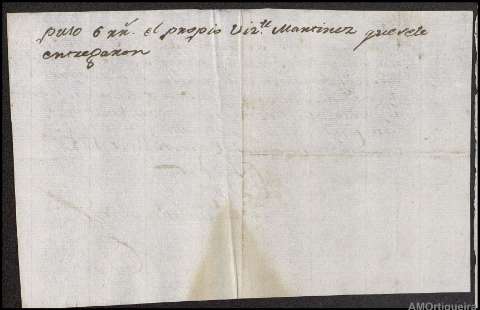 puso 6 rr.s el propio Viz.te Martinez que se le
entregaron
AMOrtigueira